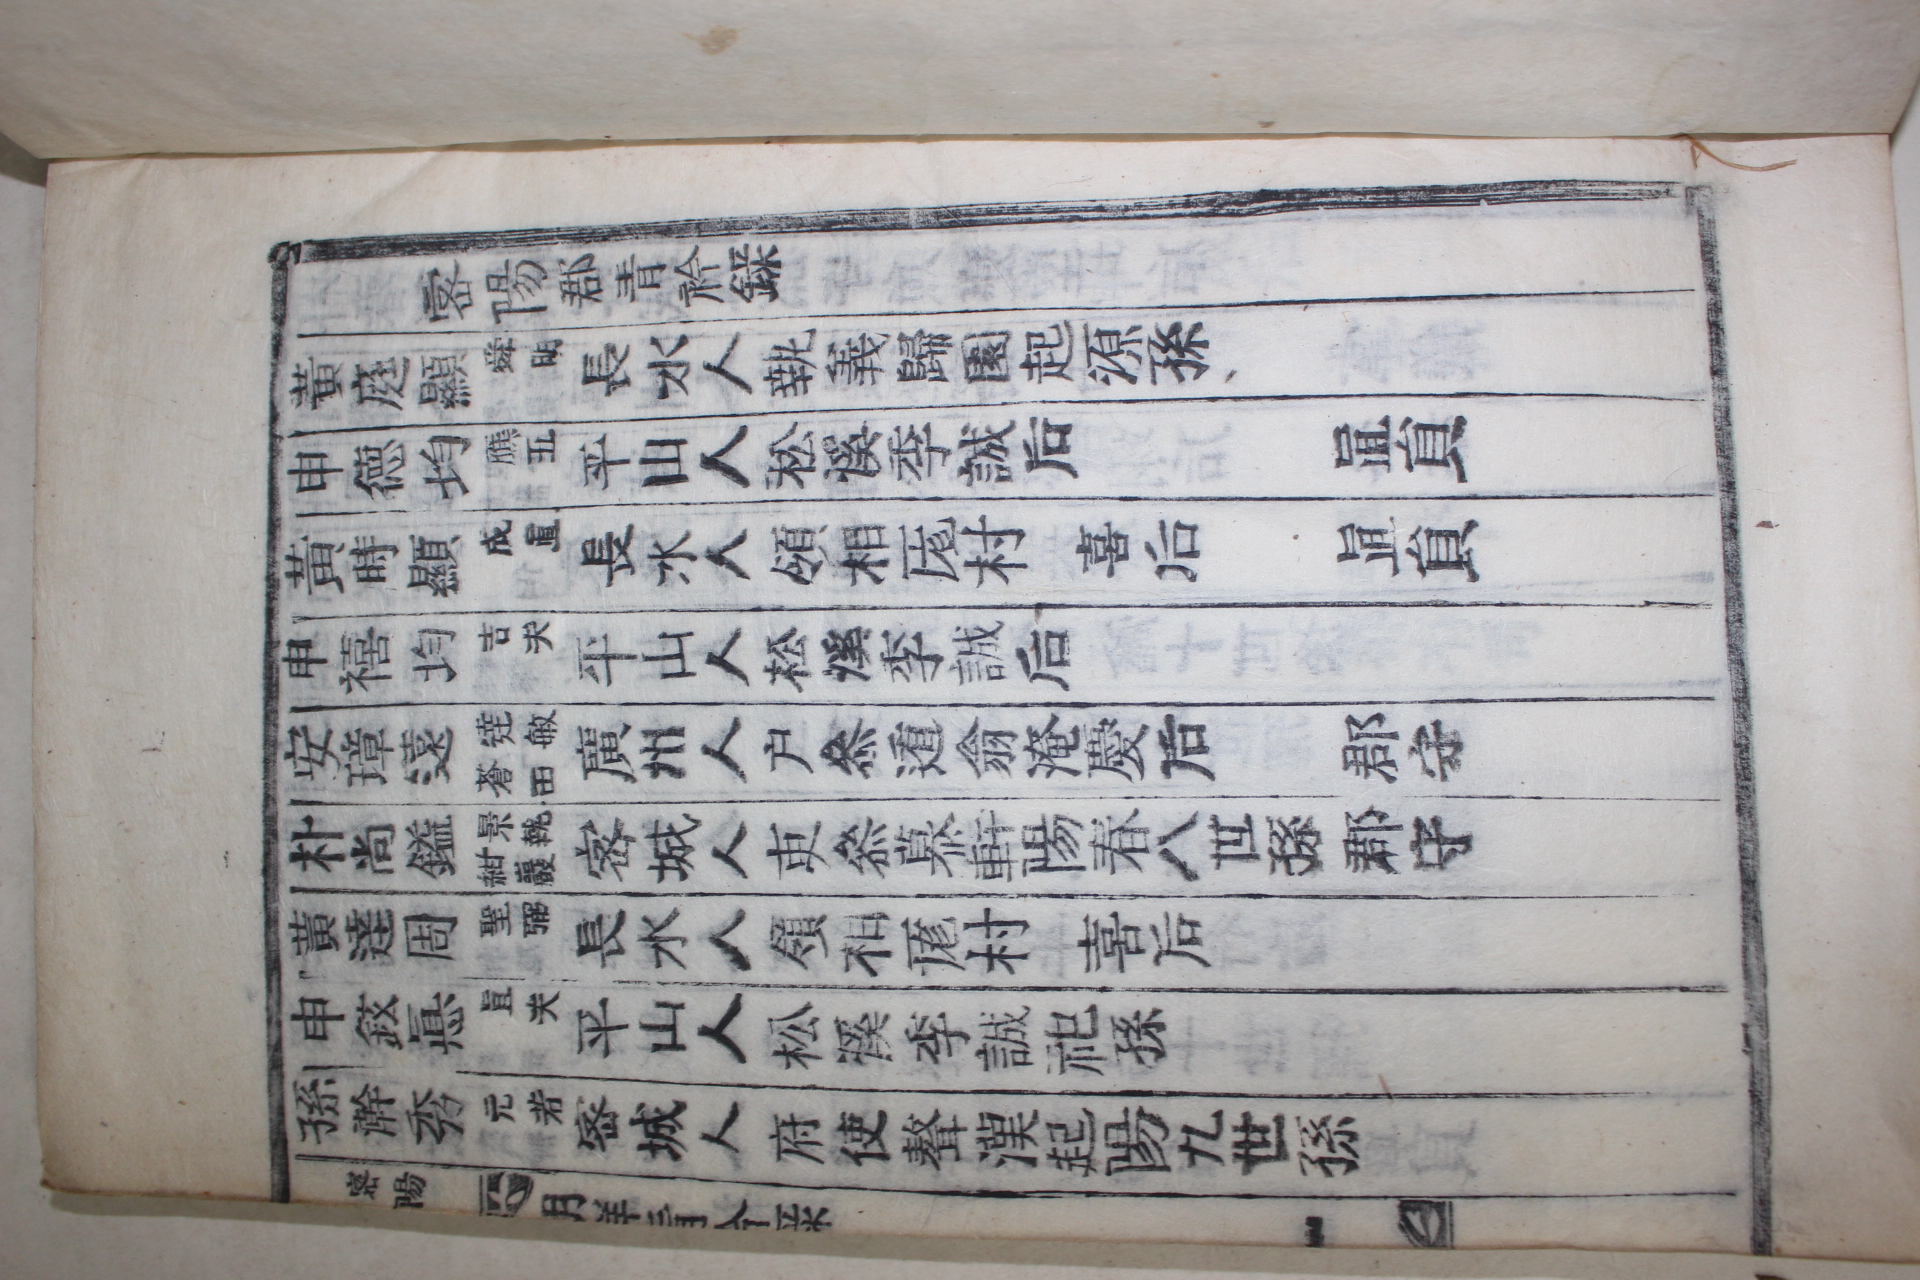 密陽郡青衿錄
黃庭顯 舜明 長水人 執義歸園起源孫
申德均 應五 平山人 松溪季誠后 直員
黃時顯 成直 長水人 領相厖村 喜后 直員
申禧均 吉夫 平山人 松溪季誠后
安璋遠 達敏 蒼田 廣州人 户叅遁翁淹慶后 郡守
朴尚鎰 景執 紺巖 密城人 吏叅慕軒陽春八世孫 郡守
黃達周 聖弼 長水人 領相厖村 喜后
申鉉悳 直夫 平山人 松溪季誠祀孫
孫瀚秀 元若 密城人 府使聱漢起陽九世孫
密陽
青衿錄
一